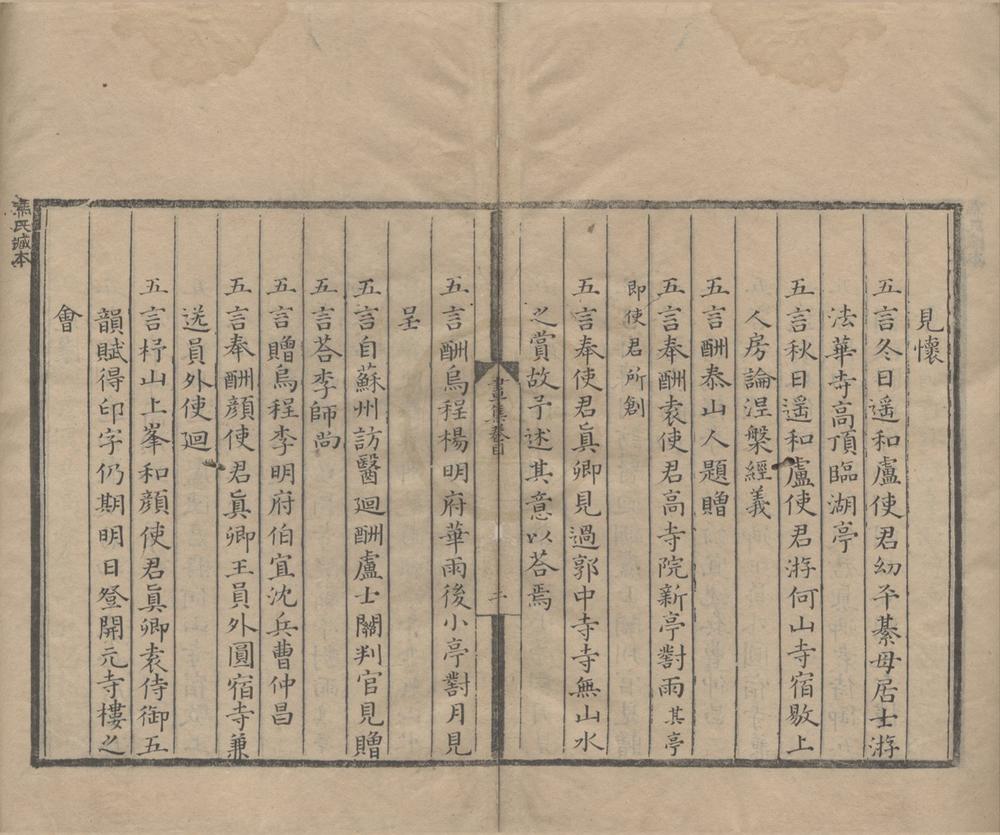 見懷
五言冬日遥和盧使君幼平綦毋居士游
法華寺高頂臨湖亭
五言秋日遥和盧使君游何山寺宿敭上
人房論涅槃經義
五言酬泰山人題贈
五言奉酬袁使君高寺院新亭對雨其亭
即使君所創
五言奉使君真卿見過郭中寺寺無山水
之賞故予述其意以荅焉
晝集卷目
二
五言酬烏程楊明府華雨後小亭對月見
呈
五言自蘇州訪醫廻酬盧士關判官見贈
五言荅李師尚
五言贈烏程李明府伯宜沈兵曹仲昌
五言奉酬顔使君真卿王員外圓宿寺兼
送員外使廻
五言杼山上峯和顔使君真卿袁侍御五
韻賦得印字仍期明日登開元寺樓之
會
氏藏本